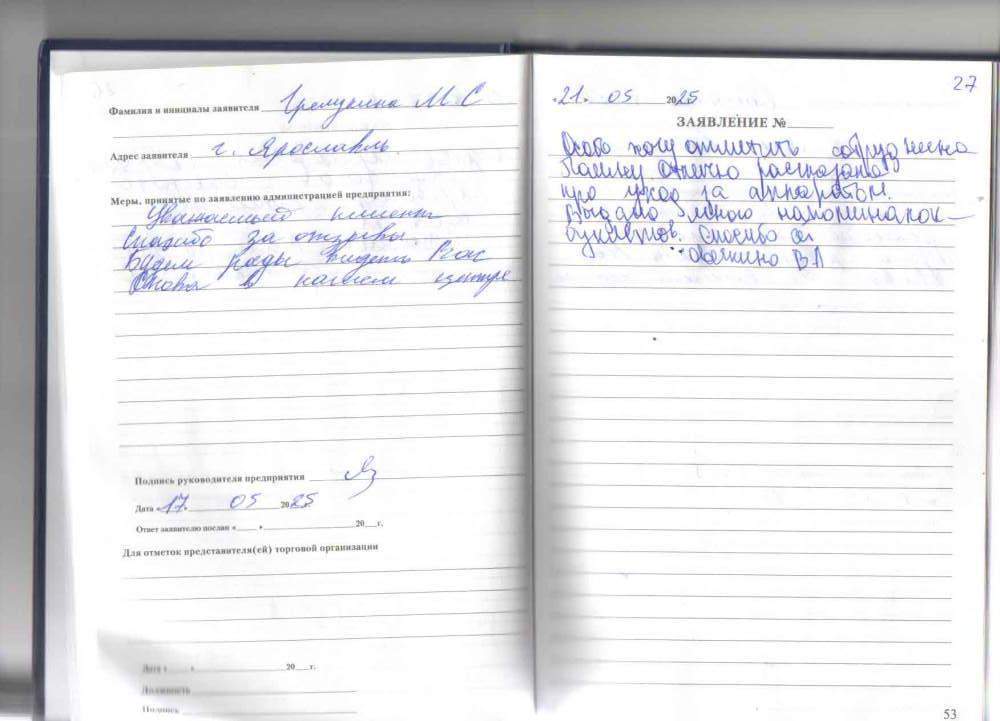 Фамилия и инициалы заявителя М С
Адрес заявителя г. Ярославль
Меры, принятые по заявлению администрацией предприятия:
Уважаемый клиент
Спасибо за отзывы.
Будем рады видеть Вас
Снова в нашем центре
Подпись руководителя предприятия
Дата «17» 05 2025г.
Ответ заявителю послан « » 20 г.
Для отметок представителя(ей) торговой организации
Дата « » 20 г.
Должность
Подпись
27
«21» 05 2025
ЗАЯВЛЕНИЕ №
Особо хочу отметить сотрудника
рассказано
про уход за аппаратом.
Выдано много напоминалок-
буклетов. Спасибо
ВЛ
53